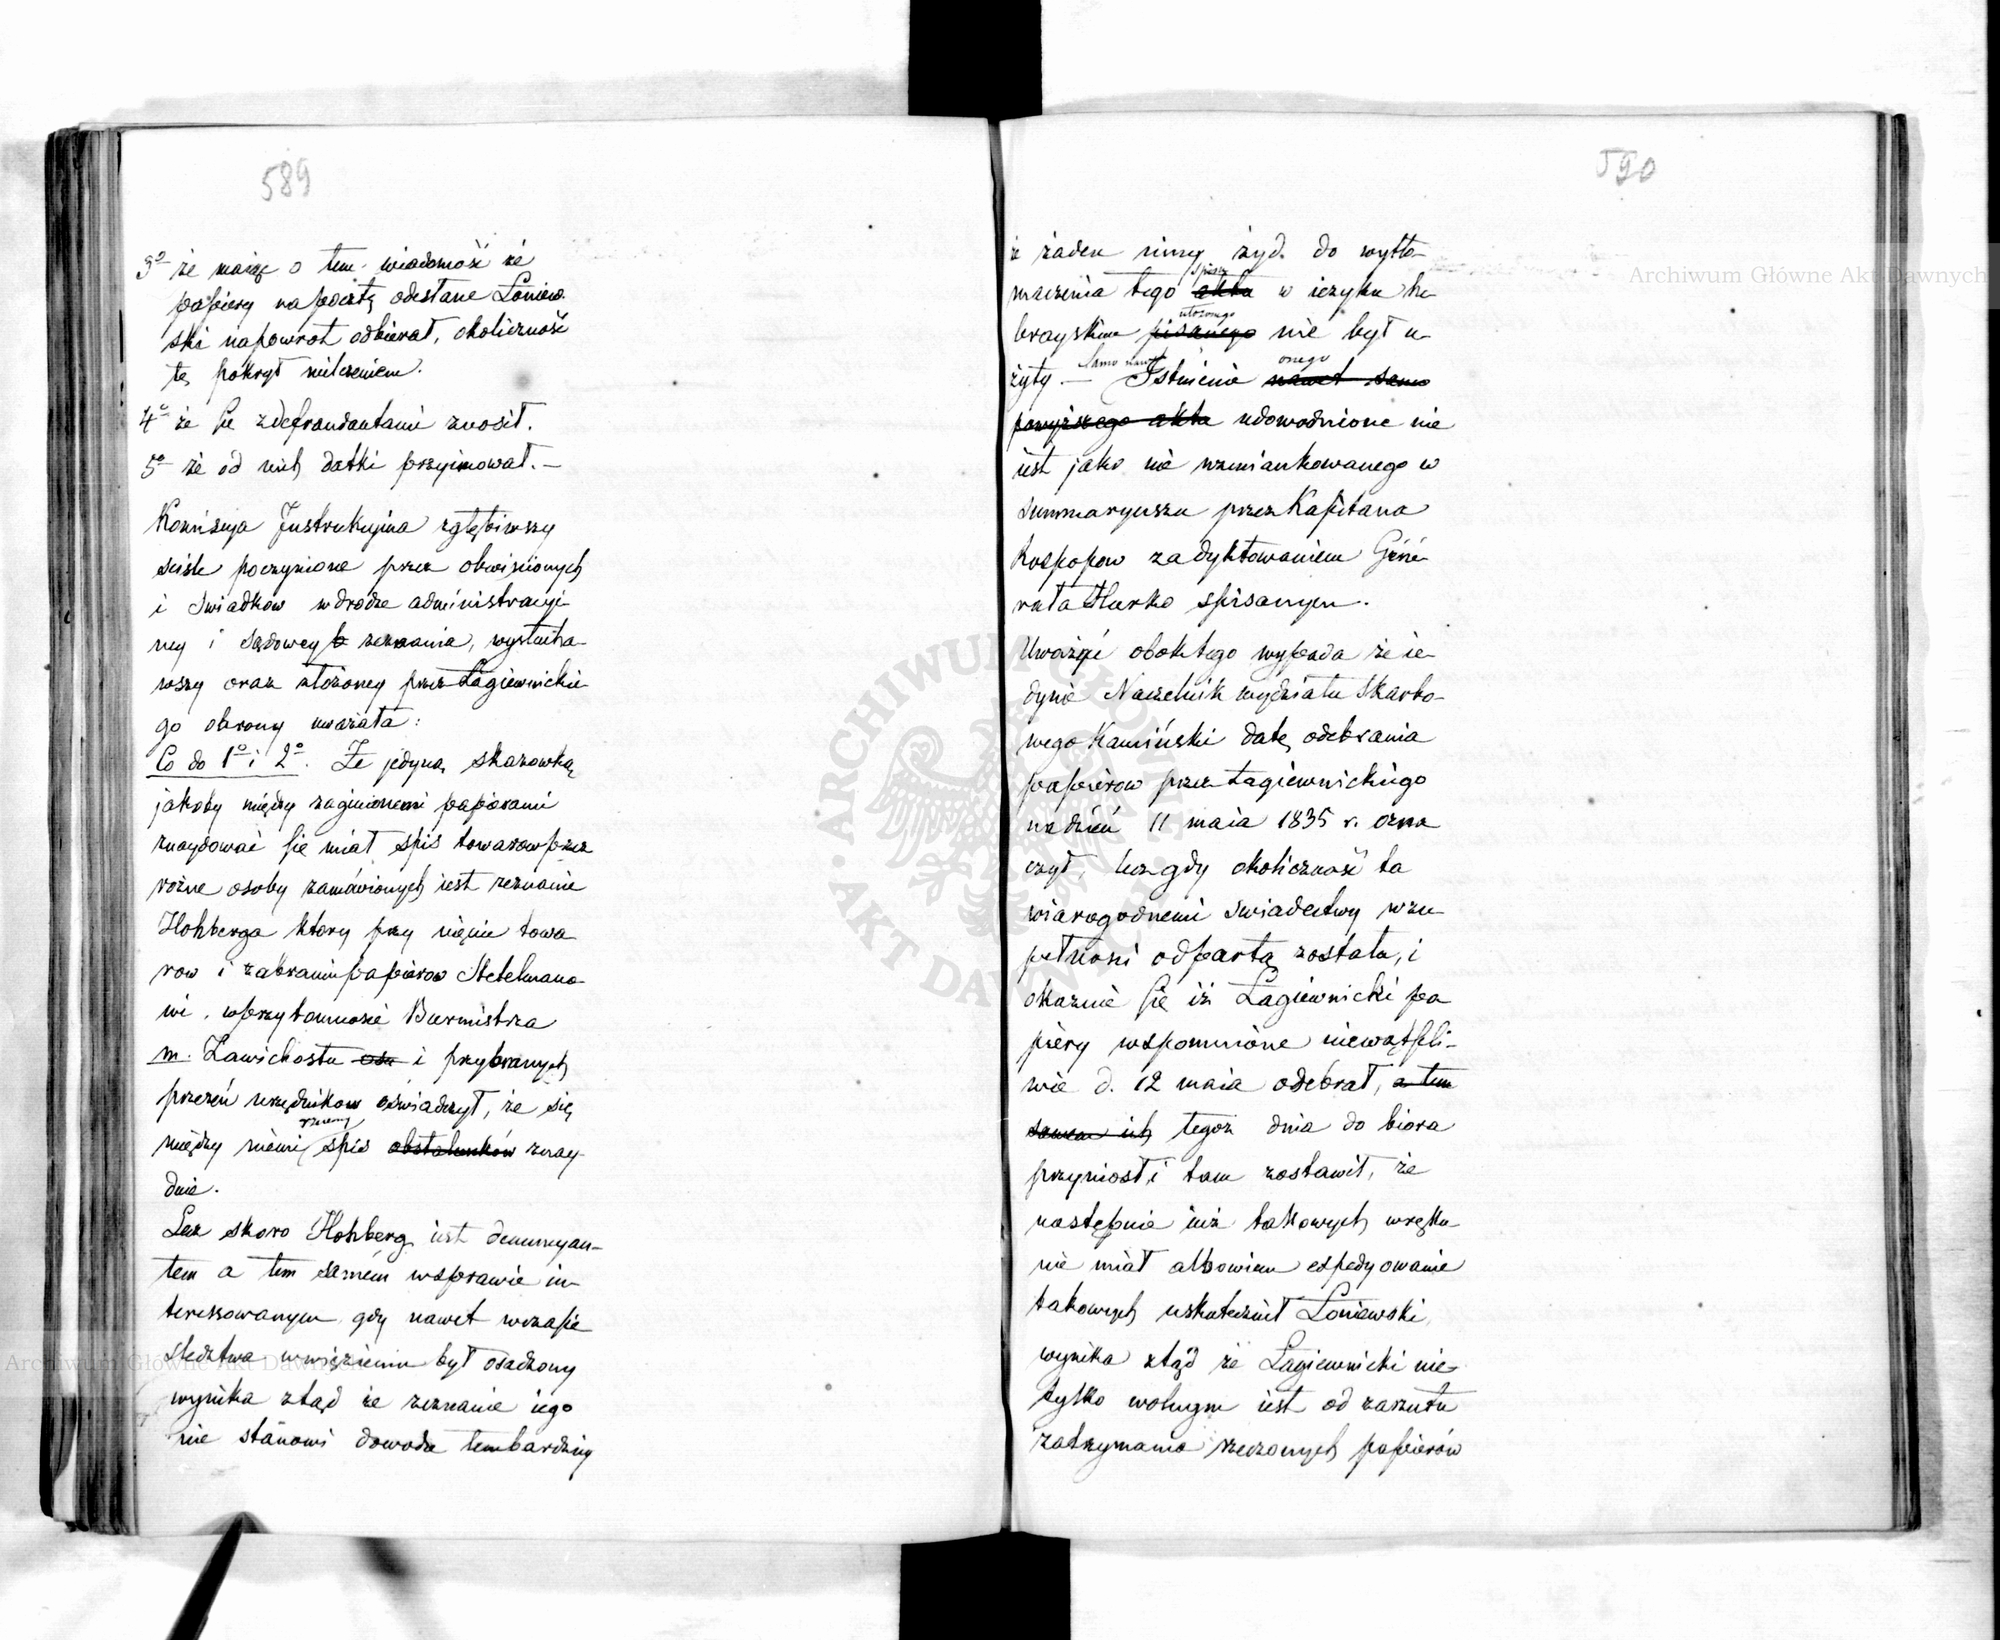 589
3o że maiąc o tem wiadomość że
papiery na pocztę odesłane Łoniew
ski napowrot odbierał, okoliczność
tę pokrył milczeniem.
4o że się z defraudantami znosił.
5o że od nich datki przyimował. —
Kommissya Instrukcyina zgłębiwszy
ściśle poczynione przez obwinionych
i świadkow w drodze administracyi
ney i sądowey zeznania, wysłucha-
wszy oraz złożoney przez Łagiewnickie
go obrony uważała:
Co do 1o i 2o. Że jedyną skazowką
jakoby między zaginionemi papierami
znaydować się miał spis towarow przez
rożne osoby zamówionych iest zeznanie
Hohberga ktory przy uięciu towa
row i zabraniu papierow Stetelmano-
wi, w przytomności Burmistrza
m. Zawichostu osu i przybranych
przezeń urzędnikow oświadczył, że się
między niemi rzeczony spis obstalunków znay-
duie.
Lecz skoro Hohberg iest denuncyan-
tem a tem samém w sprawie in-
teressowanym gdy nawet w czasie
śledztwa w więzieniu był osadzony
wynika ztąd że zeznanie iego
nie stanowi dowodu tembardziey
590
iż żaden inny żyd do wytło-
maczenia tego aktu spisu w ięzyku he-
brayskim pisanego utożonego nie był u-
żyty. — Samo nawet Istnienie nawet samo onego
powyższego aktu udowodnione nie
iest jako nie wzmiankowanego w
Summaryuszu przez Kapitana
Kospopow za dyktowaniem Gene-
rała Hurko spisanym.
Uważyć obok tego wypada że ie-
dynie Naczelnik wydziału Skarbo-
wego Kamiński datę odebrania
papierow przez Łagiewnickiego
na dzień 11 maia 1835 r. ozna
czył, lecz gdy okoliczność ta
wiarogodnemi świadectwy w zu-
pełności odpartą została, i
okazuie się iż Łagiewnicki pa
piery wspomnione niewątpli-
wie d. 12 maia odebrał, a tem
samem ich tegoż dnia do biora
przyniosł i tam zostawił, że
następnie iuż takowych w ręku
nie miał albowiem expedyowanie
takowych uskutecznił Łoniewski,
wynika ztąd że Łagiewnicki nie-
tylko wolnym iest od zarzutu
zatrzymania rzeczonych papierów
Archiwum Główne Akt Dawnych
Archiwum Główne Akt Dawnych
ARCHIWUM GŁÓWNE AKT DAWNYCH